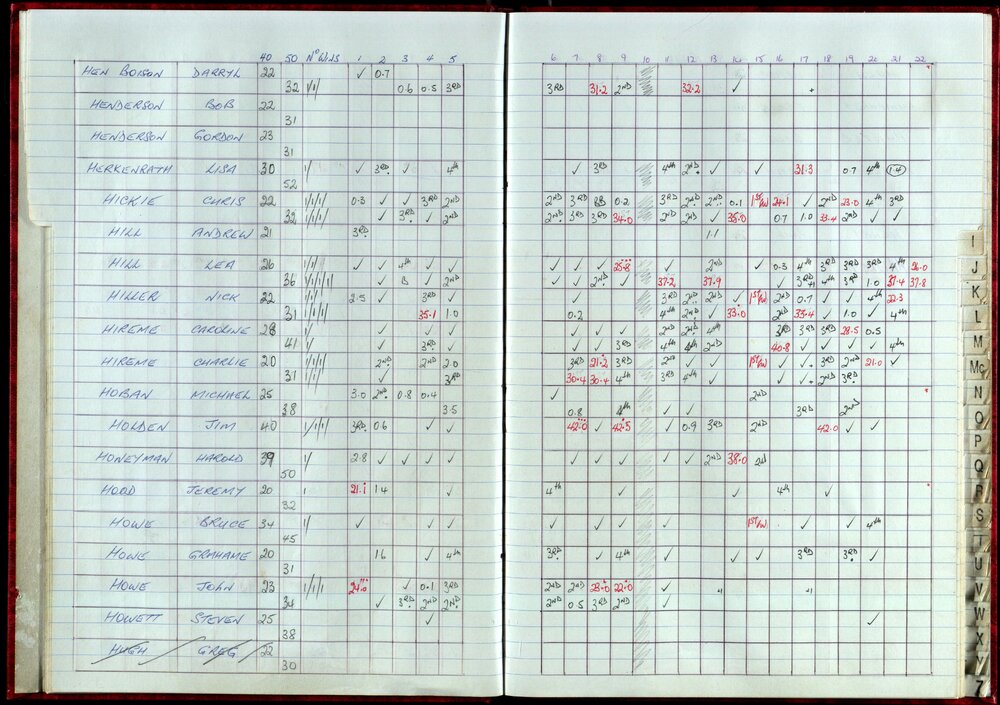 40 50 Nº Wins 1 2 3 4 5 6 7 8 9 10 11 12 13 14 15 16 17 18 19 20 21 22
HEN BOISON DARRYL 22 ✓ 0.7
32 0.6 0.5 3RD 3RD 31.2 2ND 32.2 ✓
HENDERSON BOB 22
31
HENDERSON GORDON 23
31
HERKENRATH LISA 30 ✓ 3RD ✓ 4th ✓ 3RD 4th 2ND ✓ ✓ 31.3 0.7 4th 1.4
52
HICKIE CHRIS 22 0.3 ✓ ✓ 3RD 2ND 2ND 3RD 0.2 3RD 2ND 2ND 0.1 1ST 24.1 ✓ 2ND 23.0 4th 3RD
32 ✓ 3RD ✓ 2ND 2ND 3RD 3RD 34.0 2ND 2ND ✓ 35.0 0.7 1.0 33.4 2ND ✓ ✓
HILL ANDREW 21 3RD 1.1
HILL LEA 26 ✓ ✓ 4th ✓ ✓ ✓ ✓ 25.8 ✓ 2ND ✓ 0.3 4th 3RD 3RD 3RD 4th 26.0
36 ✓ ✓ 2ND ✓ ✓ 2ND ✓ 37.2 37.9 ✓ 3RD 4th 3RD 1.0 37.4 37.8
HILLER NICK 22 2.5 ✓ 3RD ✓ ✓ 3RD 2ND 2ND ✓ 1ST 2ND 0.7 ✓ ✓ 4th 22.3
31 35.1 1.0 0.2 4th 2ND ✓ 33.0 2ND 33.4 ✓ 1.0 ✓ 4th
HIREME CAROLINE 28 ✓ ✓ ✓ ✓ ✓ ✓ 2ND 2ND 4th 3RD 3RD 3RD 28.5 0.5
41 ✓ 3RD ✓ ✓ ✓ 3RD 4th 4th 2ND 40.8 ✓ ✓ ✓ ✓ 4th
HIREME CHARLIE 20 2ND 2ND 2.0 3RD 21.2 3RD 2ND ✓ ✓ 1ST ✓ ✓ 3RD 2ND 21.0 ✓
31 ✓ 3RD 30.4 30.4 4th 3RD 4th ✓ ✓ ✓ 2ND 3RD
HOBAN MICHAEL 25 3.0 2ND 0.8 0.4 ✓ 2ND
38 3.5 0.8 4th ✓ ✓ 3RD 2ND
HOLDEN JIM 40 3RD 0.6 ✓ ✓ 42.0 ✓ 42.5 ✓ 0.9 3RD 2ND 42.0 ✓ ✓
HONEYMAN HAROLD 39 2.8 ✓ ✓ ✓ ✓ ✓ ✓ ✓ ✓ ✓ 2ND 38.0 2nd
50
HOOD JEREMY 20 21.1 1.4 ✓ 4th ✓ ✓ 4th ✓
32
HOWE BRUCE 34 ✓ ✓ ✓ ✓ ✓ ✓ ✓ ✓ 1ST ✓ ✓ 4th
45
HOWE GRAHAME 20 1.6 ✓ 4th 3RD ✓ 4th ✓ ✓ ✓ 3RD 3RD ✓
31
HOWE JOHN 23 24.0 ✓ 0.1 3RD 2ND 2ND 23.0 22.0 ✓
34 ✓ 3RD 2ND 2ND 2ND 0.5 3RD 2ND ✓
HOWETT STEVEN 25 ✓ ✓
38
HUGH GREG 22
30
I
J
K
L
M
Mc
N
O
P
Q
R
S
T
U
V
W
X
Y
Z